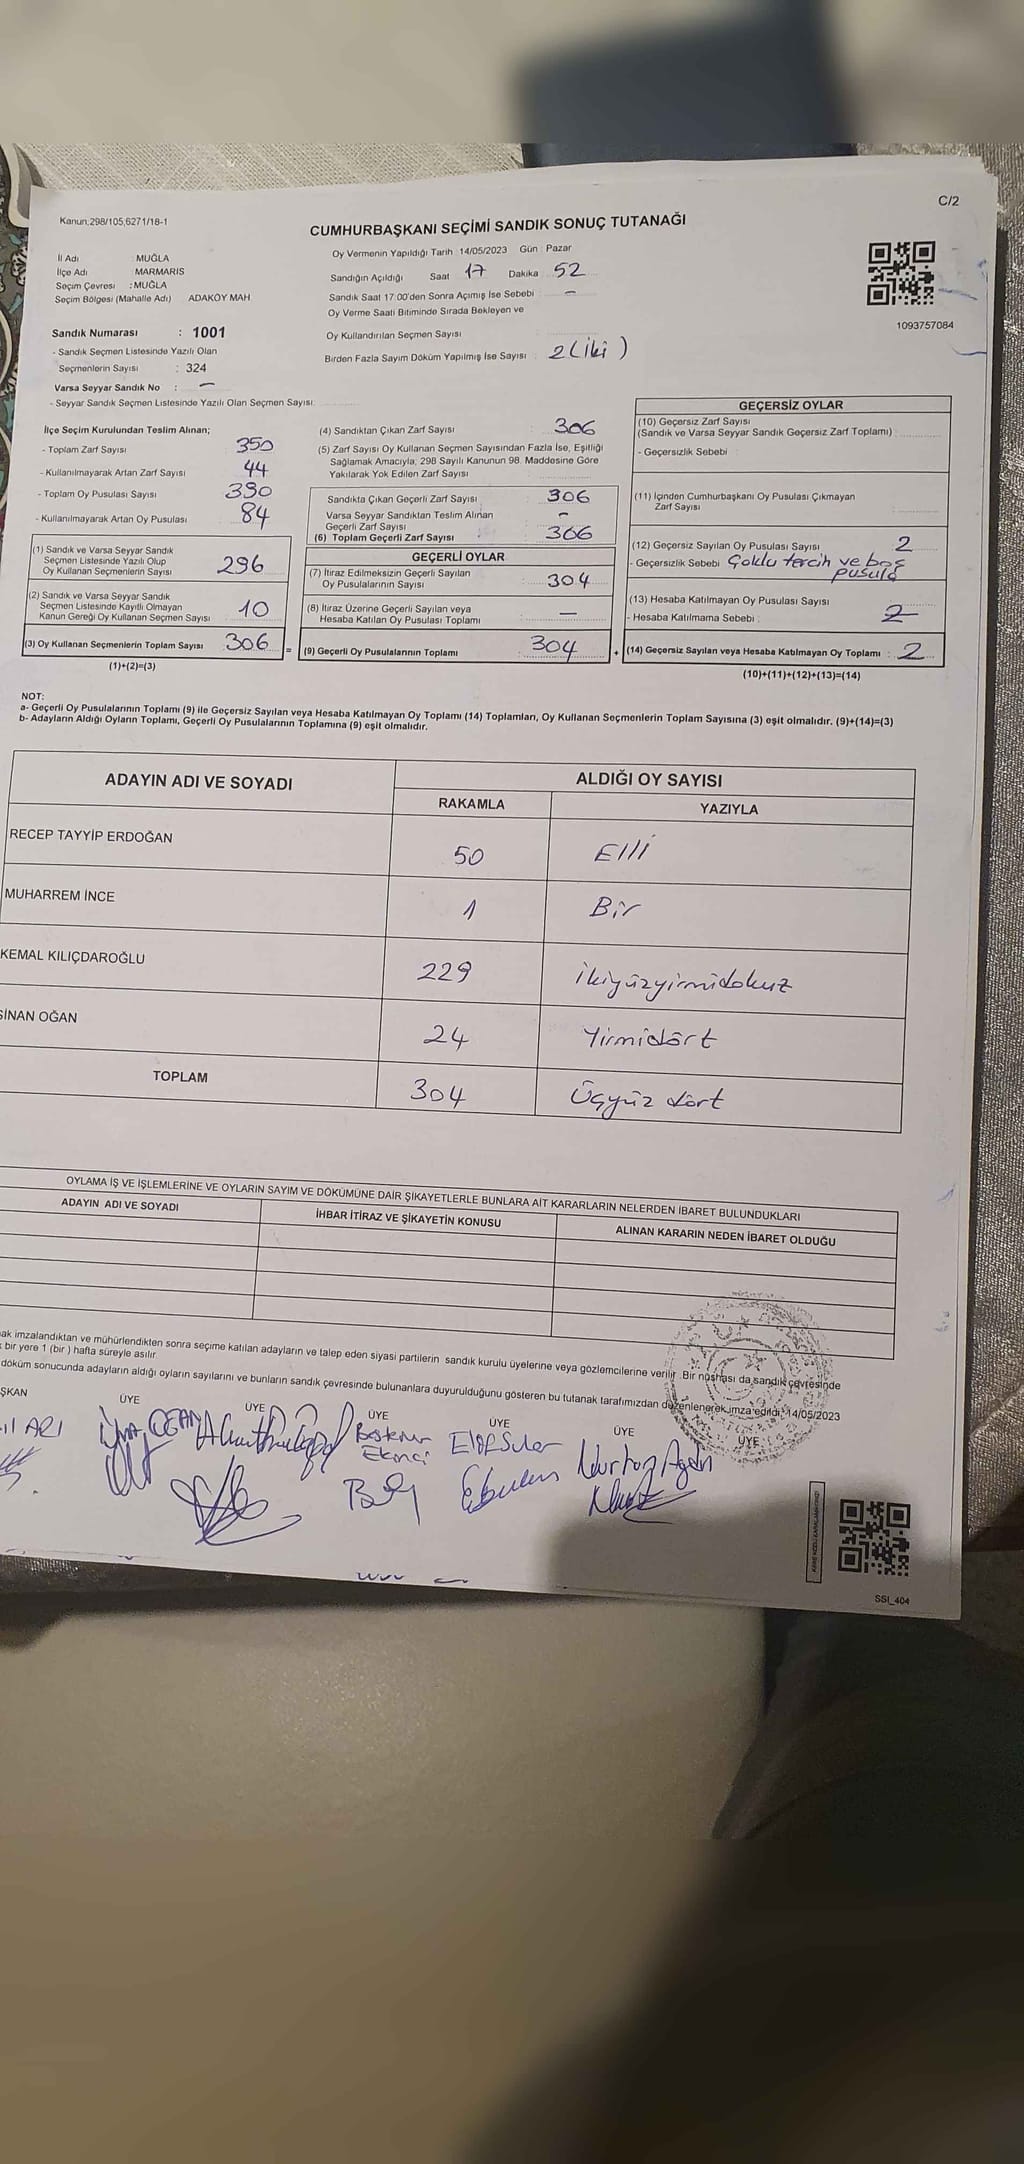 C/2
Kanun;298/105,6271/18-1
CUMHURBAŞKANI SEÇİMİ SANDIK SONUÇ TUTANAĞI
İl Adı : MUĞLA
İlçe Adı : MARMARİS
Seçim Çevresi : MUĞLA
Seçim Bölgesi (Mahalle Adı) ADAKÖY MAH.
Sandık Numarası : 1001
- Sandık Seçmen Listesinde Yazılı Olan
Seçmenlerin Sayısı : 324
Varsa Seyyar Sandık No : –
- Seyyar Sandık Seçmen Listesinde Yazılı Olan Seçmen Sayısı:
Oy Vermenin Yapıldığı Tarih : 14/05/2023 Gün : Pazar
Sandığın Açıldığı Saat 17 Dakika : 52
Sandık Saat 17:00'den Sonra Açımış İse Sebebi : –
Oy Verme Saati Bitiminde Sırada Bekleyen ve
Oy Kullandırılan Seçmen Sayısı
Birden Fazla Sayım Döküm Yapılmış İse Sayısı : 2 (iki)
1093757084
İlçe Seçim Kurulundan Teslim Alınan;
- Toplam Zarf Sayısı : 350
- Kullanılmayarak Artan Zarf Sayısı : 44
- Toplam Oy Pusulası Sayısı : 390
- Kullanılmayarak Artan Oy Pusulası : 84
(1) Sandık ve Varsa Seyyar Sandık
Seçmen Listesinde Yazılı Olup
Oy Kullanan Seçmenlerin Sayısı : 296
(2) Sandık ve Varsa Seyyar Sandık
Seçmen Listesinde Kayıtlı Olmayan
Kanun Gereği Oy Kullanan Seçmen Sayısı : 10
(3) Oy Kullanan Seçmenlerin Toplam Sayısı : 306 =
(1)+(2)=(3)
(4) Sandıktan Çıkan Zarf Sayısı : 306
(5) Zarf Sayısı Oy Kullanan Seçmen Sayısından Fazla İse, Eşitliği
Sağlamak Amacıyla; 298 Sayılı Kanunun 98. Maddesine Göre
Yakılarak Yok Edilen Zarf Sayısı
Sandıkta Çıkan Geçerli Zarf Sayısı : 306
Varsa Seyyar Sandıktan Teslim Alınan
Geçerli Zarf Sayısı : –
(6) Toplam Geçerli Zarf Sayısı : 306
GEÇERLİ OYLAR
(7) İtiraz Edilmeksizin Geçerli Sayılan
Oy Pusulalarının Sayısı : 304
(8) İtiraz Üzerine Geçerli Sayılan veya
Hesaba Katılan Oy Pusulası Toplamı : –
(9) Geçerli Oy Pusulalarının Toplamı : 304 +
GEÇERSİZ OYLAR
(10) Geçersiz Zarf Sayısı
(Sandık ve Varsa Seyyar Sandık Geçersiz Zarf Toplamı) :
- Geçersizlik Sebebi :
(11) İçinden Cumhurbaşkanı Oy Pusulası Çıkmayan
Zarf Sayısı
(12) Geçersiz Sayılan Oy Pusulası Sayısı : 2
- Geçersizlik Sebebi : Çoklu tercih ve boş
pusula
(13) Hesaba Katılmayan Oy Pusulası Sayısı
- Hesaba Katılmama Sebebi :
(14) Geçersiz Sayılan veya Hesaba Katılmayan Oy Toplamı : 2
(10)+(11)+(12)+(13)=(14)
NOT:
a- Geçerli Oy Pusulalarının Toplamı (9) ile Geçersiz Sayılan veya Hesaba Katılmayan Oy Toplamı (14) Toplamları, Oy Kullanan Seçmenlerin Toplam Sayısına (3) eşit olmalıdır. (9)+(14)=(3)
b- Adayların Aldığı Oyların Toplamı, Geçerli Oy Pusulalarının Toplamına (9) eşit olmalıdır.
ADAYIN ADI VE SOYADI
ALDIĞI OY SAYISI
RAKAMLA YAZIYLA
RECEP TAYYİP ERDOĞAN 50 Elli
MUHARREM İNCE 1 Bir
KEMAL KILIÇDAROĞLU 229 ikiyüzyirmidokuz
SİNAN OĞAN 24 Yirmidört
TOPLAM 304 Üçyüz dört
OYLAMA İŞ VE İŞLEMLERİNE VE OYLARIN SAYIM VE DÖKÜMÜNE DAİR ŞİKAYETLERLE BUNLARA AİT KARARLARIN NELERDEN İBARET BULUNDUKLARI
ADAYIN ADI VE SOYADI İHBAR İTİRAZ VE ŞİKAYETİN KONUSU ALINAN KARARIN NEDEN İBARET OLDUĞU
ak imzalandıktan ve mühürlendikten sonra seçime katılan adayların ve talep eden siyasi partilerin sandık kurulu üyelerine veya gözlemcilerine verilir. Bir nüshası da sandık çevresinde
bir yere 1 (bir) hafta süreyle asılır.
döküm sonucunda adayların aldığı oyların sayılarını ve bunların sandık çevresinde bulunanlara duyurulduğunu gösteren bu tutanak tarafımızdan düzenlenerek imza edildi. 14/05/2023
ŞKAN ÜYE ÜYE ÜYE ÜYE ÜYE ÜYE
ARI
Ekinci
SSI_404